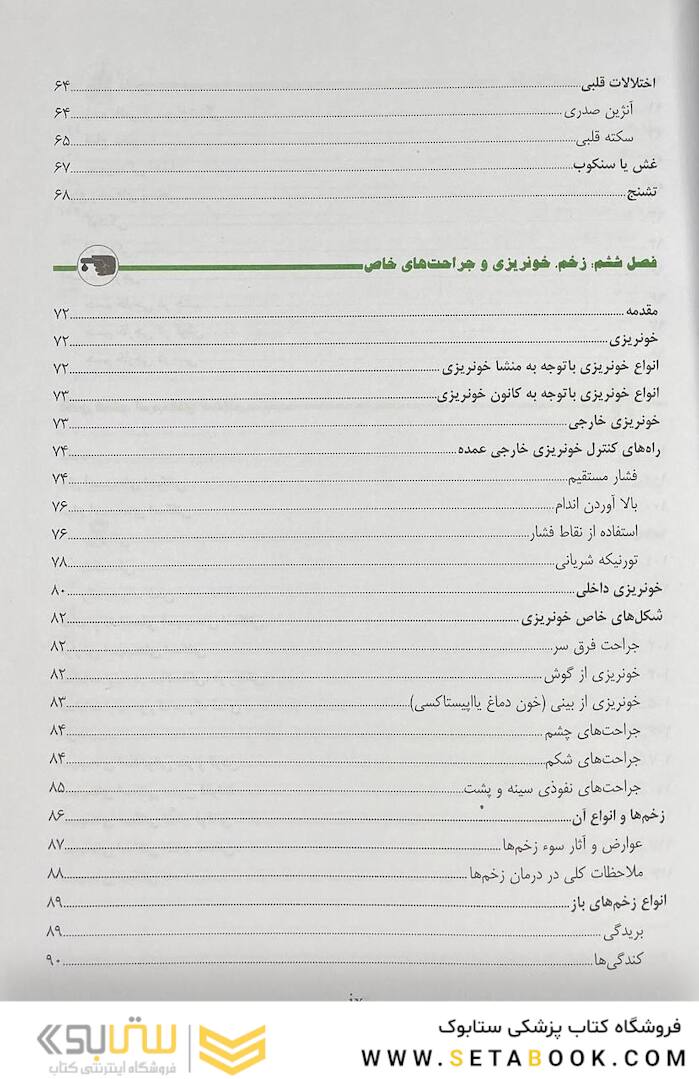 اختلالات قلبی ۶۴
آنژین صدری ۶۴
سکته قلبی ۶۵
غش یا سنکوپ ۶۷
تشنج ۶۸
فصل ششم: زخم، خونریزی و جراحت‌های خاص
مقدمه ۷۲
خونریزی ۷۲
انواع خونریزی باتوجه به منشا خونریزی ۷۲
انواع خونریزی باتوجه به کانون خونریزی ۷۳
خونریزی خارجی ۷۳
راه‌های کنترل خونریزی خارجی عمده ۷۴
فشار مستقیم ۷۴
بالا آوردن اندام ۷۶
استفاده از نقاط فشار ۷۶
تورنیکه شریانی ۷۸
خونریزی داخلی ۸۰
شکل‌های خاص خونریزی ۸۲
جراحت فرق سر ۸۲
خونریزی از گوش ۸۲
خونریزی از بینی (خون دماغ یااپیستاکسی) ۸۳
جراحت‌های چشم ۸۴
جراحت‌های شکم ۸۴
جراحت‌های نفوذی سینه و پشت ۸۵
زخم‌ها و انواع آن ۸۶
عوارض و آثار سوء زخم‌ها ۸۷
ملاحظات کلی در درمان زخم‌ها ۸۸
انواع زخم‌های باز ۸۹
بریدگی ۸۹
کندگی‌ها ۹۰
فروشگاه کتاب پزشکی ستابوک
WWW.SETABOOK.COM
ستابوک
فروشگاه اینترنتی کتاب